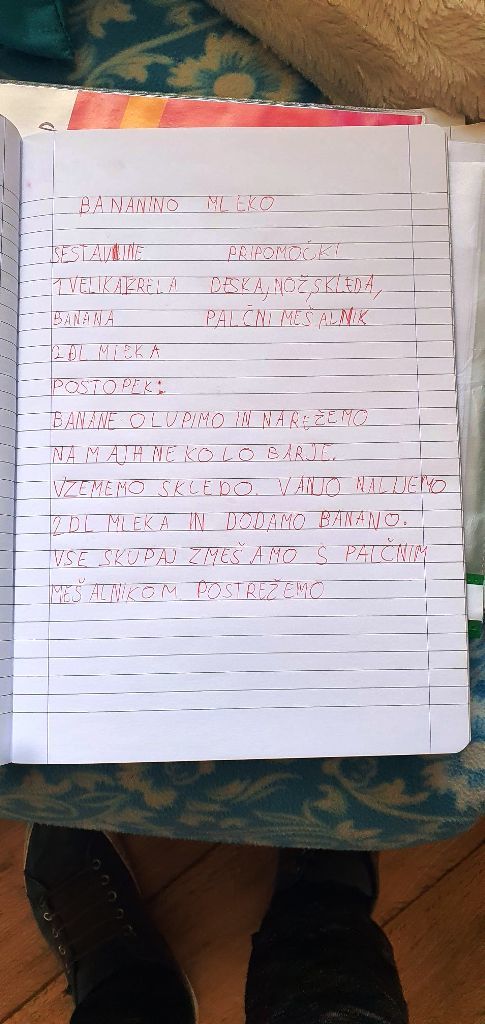 BANANINO MLEKO
SESTAVINE PRIPOMOČKI
1 VELIKA ZRELA DESKA, NOŽ, SKLEDA,
BANANA PALČNI MEŠALNIK
2DL MLEKA
POSTOPEK:
BANANE OLUPIMO IN NAREŽEMO
NA MAJHNE KOLOBARJE.
VZEMEMO SKLEDO. VANJO NALIJEMO
2DL MLEKA IN DODAMO BANANO.
VSE SKUPAJ ZMEŠAMO S PALČNIM
MEŠALNIKOM. POSTREŽEMO